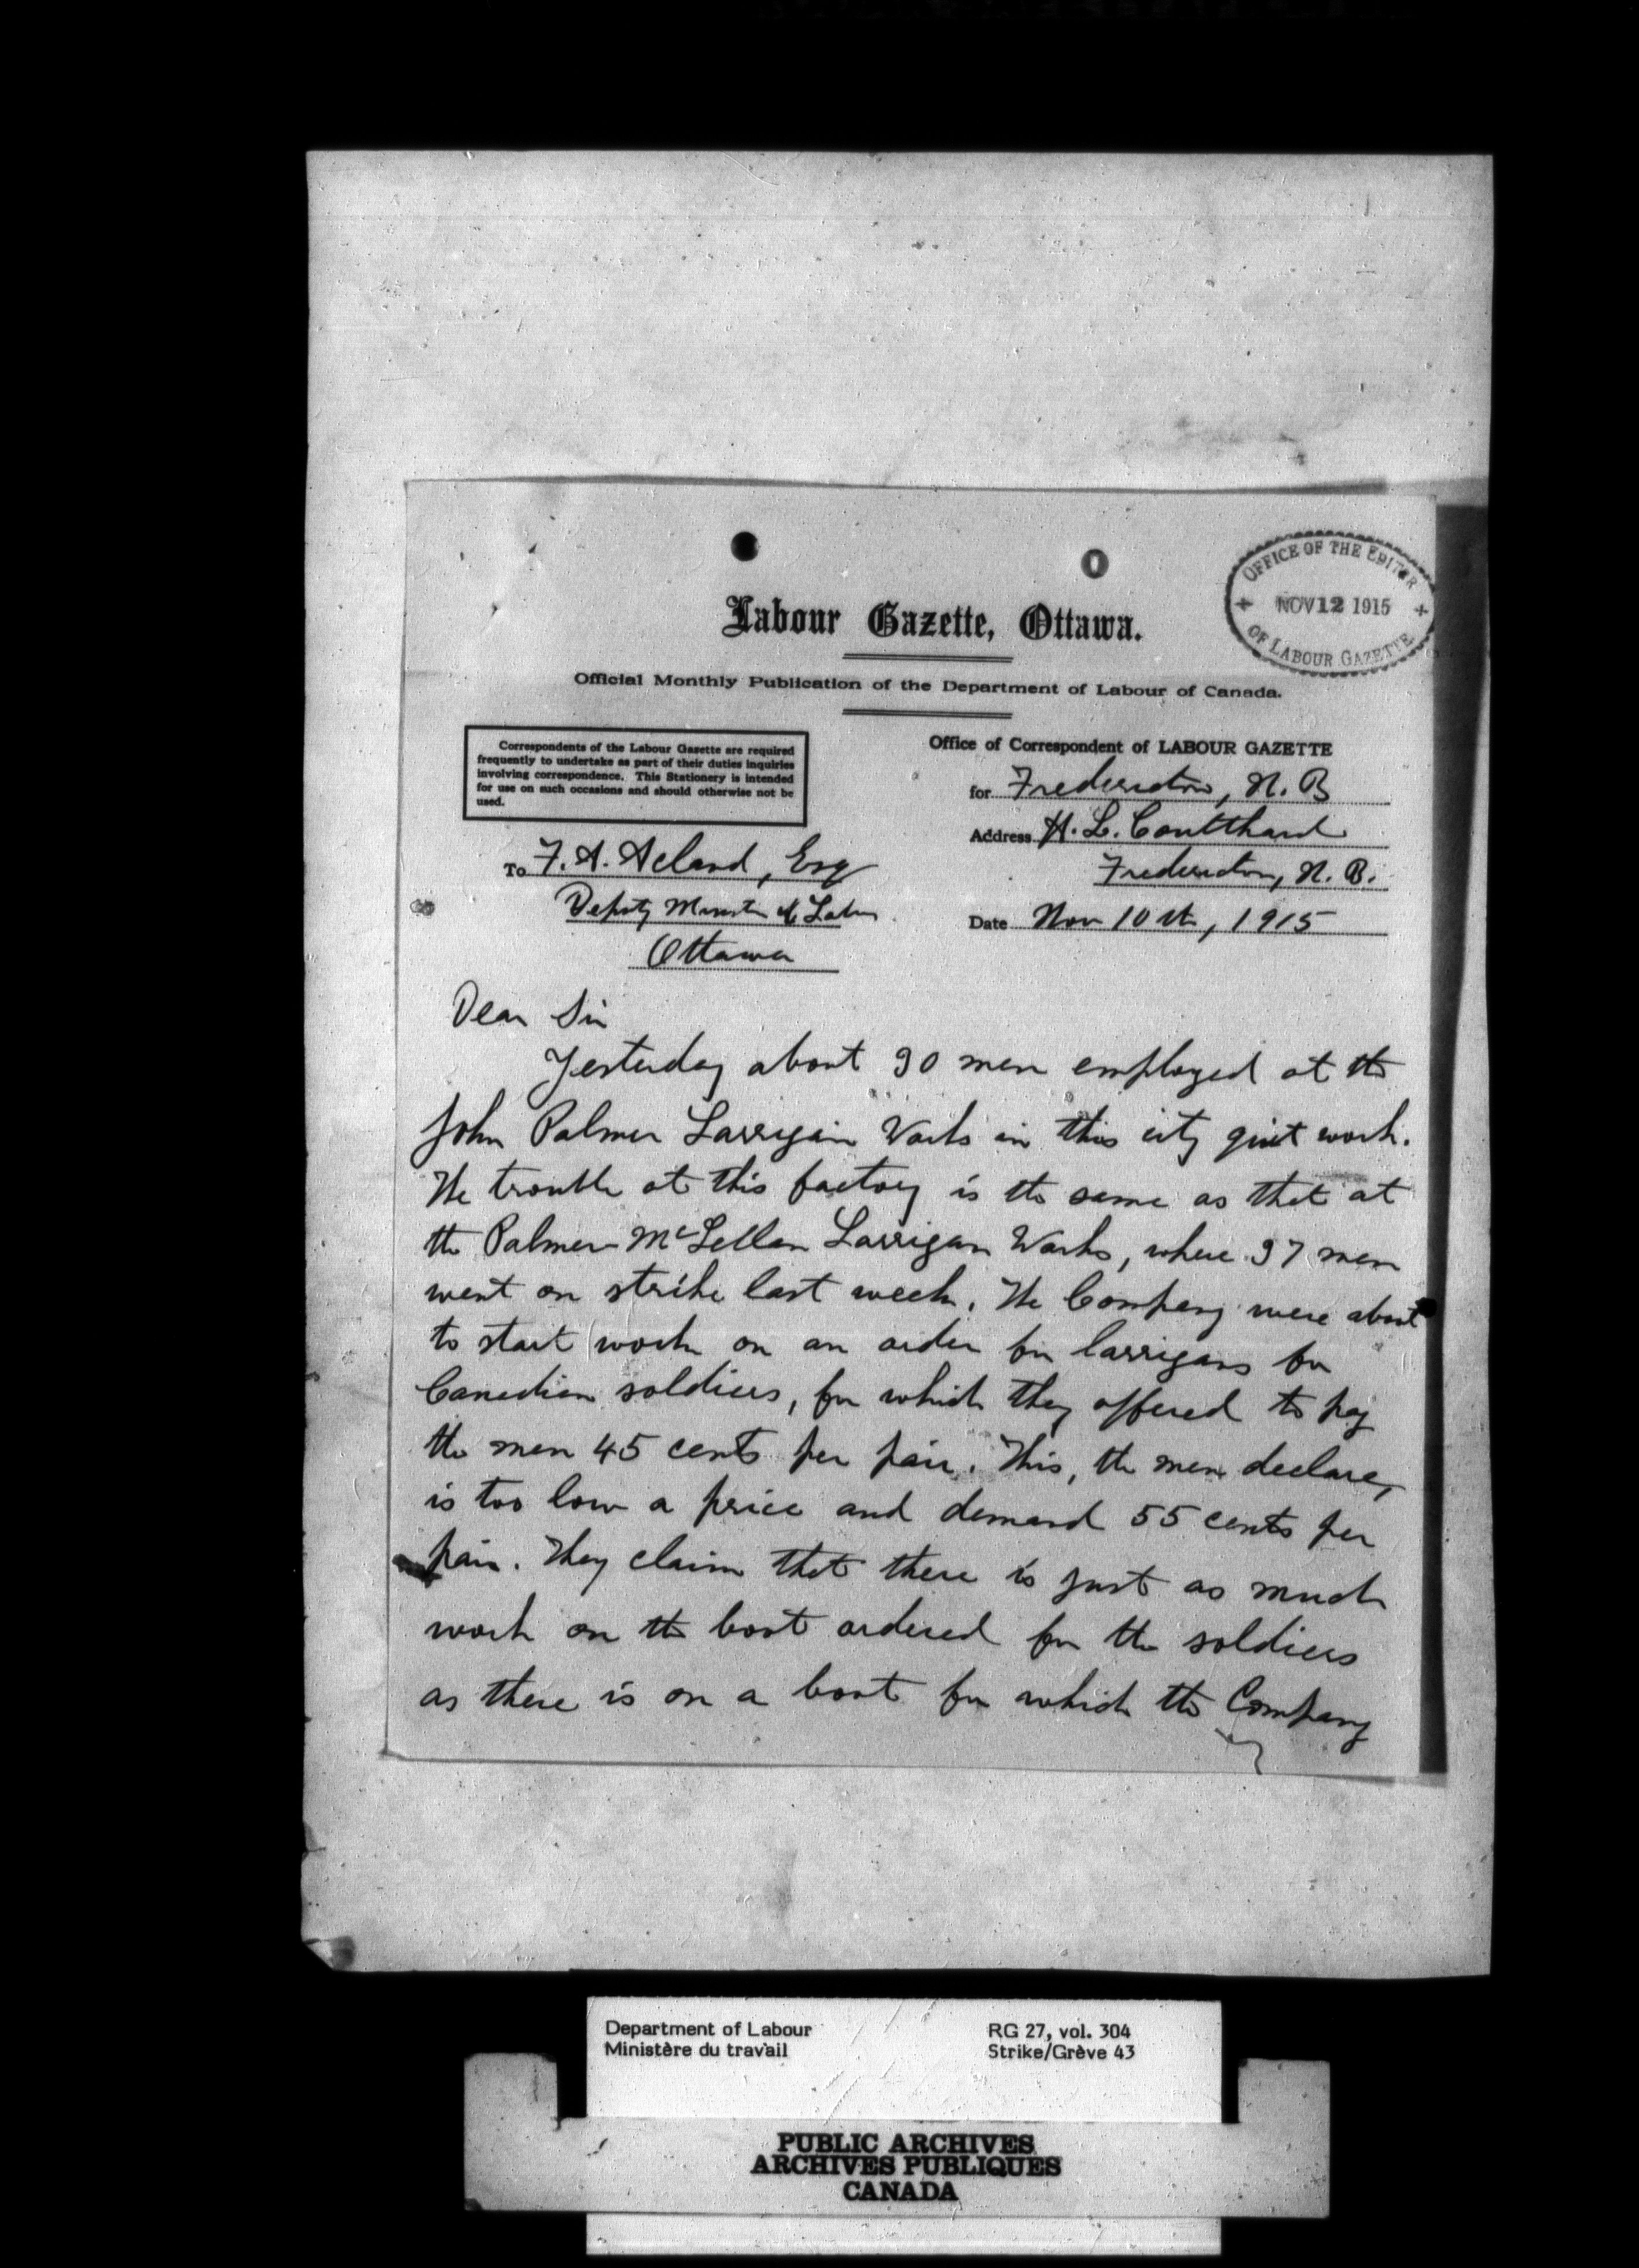 OFFICE OF THE EDITOR
NOV 12 1915
OF LABOUR GAZETTE
Labour Gazette, Ottawa.
Official Monthly Publication of the Department of Labour of Canada.
Correspondents of the Labour Gazette are required
frequently to undertake as part of their duties inquiries
involving correspondence. This Stationery is intended
for use on such occasions and should otherwise not be
used.
Office of Correspondent of LABOUR GAZETTE
for Fredericton, N. B
Address H. L. Coulthard
Fredericton, N. B.
Date Nov 10th, 1915
To F. A. Acland, Esq
Deputy Minister of Labor
Ottawa
Dear Sir
Yesterday about 30 men employed at the
John Palmer Larrigan Works in this city quit work.
The trouble at this factory is the same as that at
the Palmer-McLellan Larrigan Works, where 37 men
went on strike last week. The Company were about
to start work on an order for larrigans for
Canadian soldiers, for which they offered to pay
the men 45 cents per pair. This, the men declare,
is too low a price and demand 55 cents per
pair. They claim that there is just as much
work on the boot ordered for the soldiers
as there is on a boot for which the Company
Department of Labour
Ministère du travail
RG 27, vol. 304
Strike/Grève 43
PUBLIC ARCHIVES
ARCHIVES PUBLIQUES
CANADA